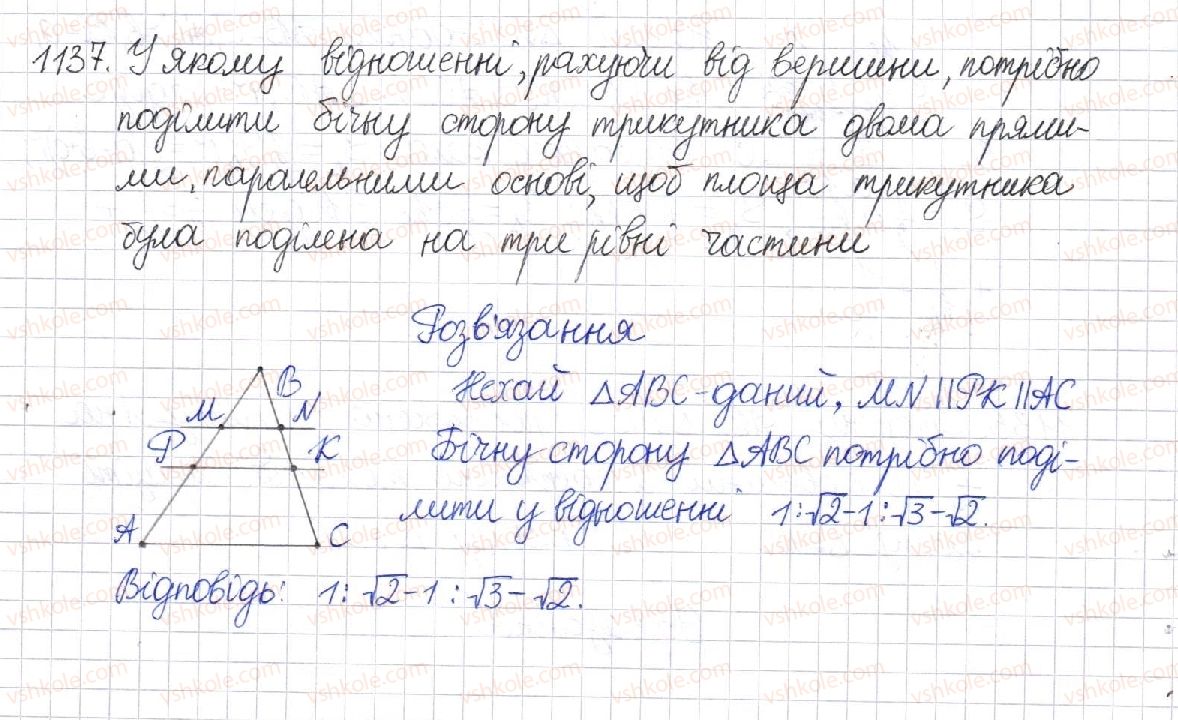 1137. У якому відношенні, рахуючи від вершини, потрібно
поділити бічну сторону трикутника двома прями-
ми, паралельними основі, щоб площа трикутника
була поділена на три рівні частини
Розв'язання
B
M N
P K
A C
Нехай △ABC - даний, MN || PK || AC
Бічну сторону △ABC потрібно поді-
лити у відношенні 1 : √2 - 1 : √3 - √2.
Відповідь: 1 : √2 - 1 : √3 - √2.
vshkole.com